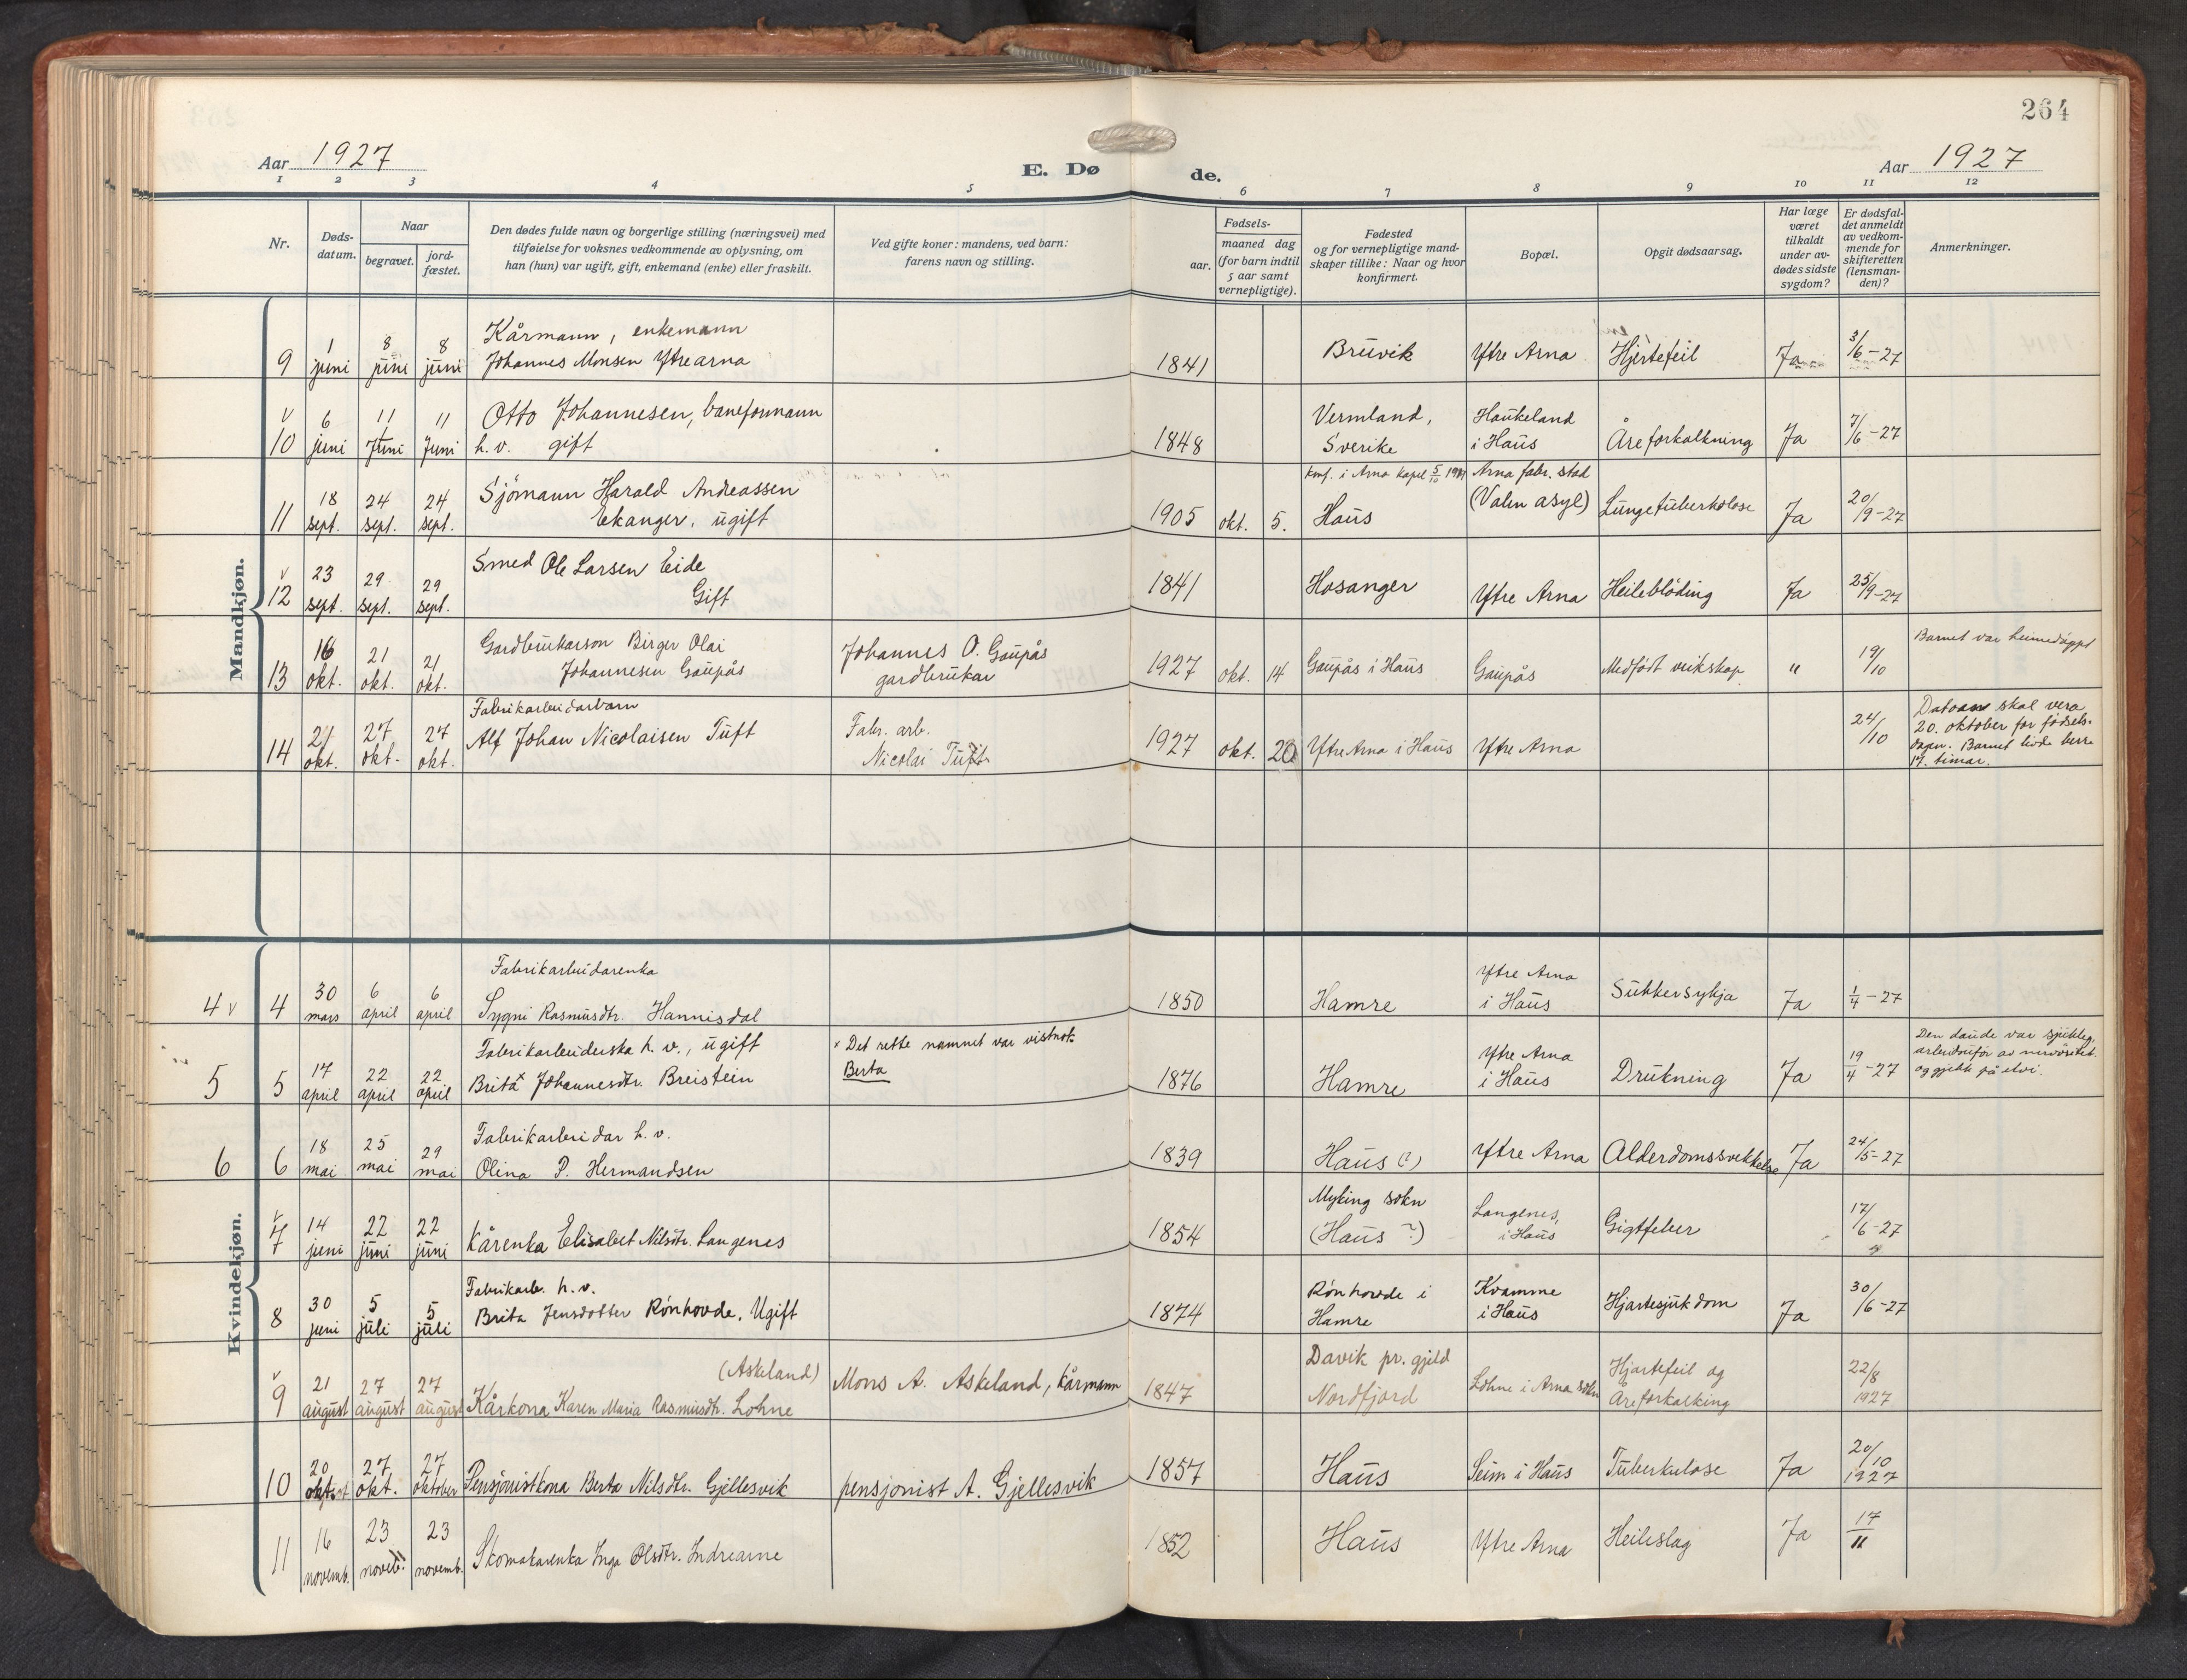 264
Aar 1927
E. Dø
de.
Aar 1927
1 2 3 4 5 6 7 8 9 10 11 12
Nr.
Døds-
datum.
Naar
begravet.
jord-
fæstet.
Den dødes fulde navn og borgerlige stilling (næringsvei) med
tilføielse for voksnes vedkommende av oplysning, om
han (hun) var ugift, gift, enkemand (enke) eller fraskilt.
Ved gifte koner: mandens, ved barn:
farens navn og stilling.
Fødsels-
aar.
maaned dag
(for barn indtil
5 aar samt
vernepligtige).
Fødested
og for vernepligtige mand-
skaper tillike: Naar og hvor
konfirmert.
Bopæl.
Opgit dødsaarsag.
Har læge
været
tilkaldt
under av-
dødes sidste
sygdom?
Er dødsfal-
det anmeldt
av vedkom-
mende for
skifteretten
(lensman-
den)?
Anmerkninger.
Mandkjøn.
9
1
juni
8
juni
8
juni
Kårmann, enkemann
Johannes Monsen Ytrearna
1841
Bruvik
Ytre Arna
Hjertefeil
Ja
3/6-27
v
10
6
juni
11
Juni
11
Juni
Otto Johannesen, baneformann
h. v. gift
1848
Vermland,
Sverike
Haukeland
i Haus
Åreforkalkning
Ja
7/6-27
11
18
sept.
24
sept.
24
sept.
Sjömann Harald Andreassen
Ekanger, ugift
1905
okt.
5.
konf. i Arna kapel 5/10 19
Haus
Arna fabr. stad
(Valen asyl)
Lungetuberkolose
Ja
20/9-27
v
12
23
sept.
29
sept.
29
sept.
Smed Ole Larsen Eide
Gift
1841
Hosanger
Ytre Arna
Heileblöding
Ja
25/9-27
13
16
okt.
21
okt.
21
okt.
Gardbrukarson Birger Olai
Johannesen Gaupås
Johannes O. Gaupås
gardbrukar
1927
okt.
14
Gaupås i Haus
Gaupås
Medfödt veikskap
"
19/10
Barnet var heimedöypt
14
21
okt.
27
okt.
27
okt.
Fabrikarbeidarbarn
Alf Johan Nicolaisen Tuft
Fabr. arb.
Nicolai Tuft
1927
okt.
20
Ytre Arna i Haus
Ytre Arna
24/10
Datoen skal vera
20. oktober for födsels-
dagen. Barnet livde berre
17. timar.
Kvindekjøn.
4 v
4
30
mars
6
april
6
april
Fabrikarbeidarenka
Sygni Rasmusdtr. Hannisdal
1850
Hamre
Ytre Arna
i Haus
Sukkersykja
Ja
1/4-27
5
5
17
april
22
april
22
april
Fabrikarbeiderska h. v., ugift
Brita× Johannesdtr. Breistein
× Det rette namnet var vistnok
Berta
1876
Hamre
Ytre Arna
i Haus
Drukning
Ja
19/4-27
Den daude var sjukleg,
arbeidsuför av nervösitet
og gjekk på elvi.
6
6
18
mai
25
mai
29
mai
Fabrikarbeidar h. v.
Olina P. Hermandsen
1839
Haus (?)
Ytre Arna
Alderdomssvekkelse
Ja
24/5-27
v
7
14
juni
22
juni
22
juni
Kårenka Elisabet Nilsdtr. Langenes
1854
Myking sokn
(Haus ?)
Langenes,
i Haus
Gigtfeber
17/6-27
8
30
juni
5
juli
5
juli
Fabrikarb. h. v.
Brita Jensdotter Rönhovde. Ugift
1874
Rönhovde i
Hamre
Kvamme
i Haus
Hjartesjukdom
Ja
30/6-27
v
9
21
august
27
august
27
august
(Askeland)
Kårkona Karen Maria Rasmusdtr. Lohne
Mons A. Askeland, kårmann
1847
Davik pr. gjeld
Nordfjord
Lohne i Arna sokn
Hjartefeil og
Åreforkalking
22/8
1927
10
20
okt.
27
okt.
27
oktober
Pensjonistkona Berta Nilsdtr. Gjellesvik
pensjonist A. Gjellesvik
1857
Haus
Seim i Haus
Tuberkulose
Ja
20/10
1927
11
16
novemb.
23
noveb.
23
novemb.
Skomakarenka Inga Olsdtr. Indrearne
1852
Haus
Ytre Arna
Heileslag
Ja
17/11